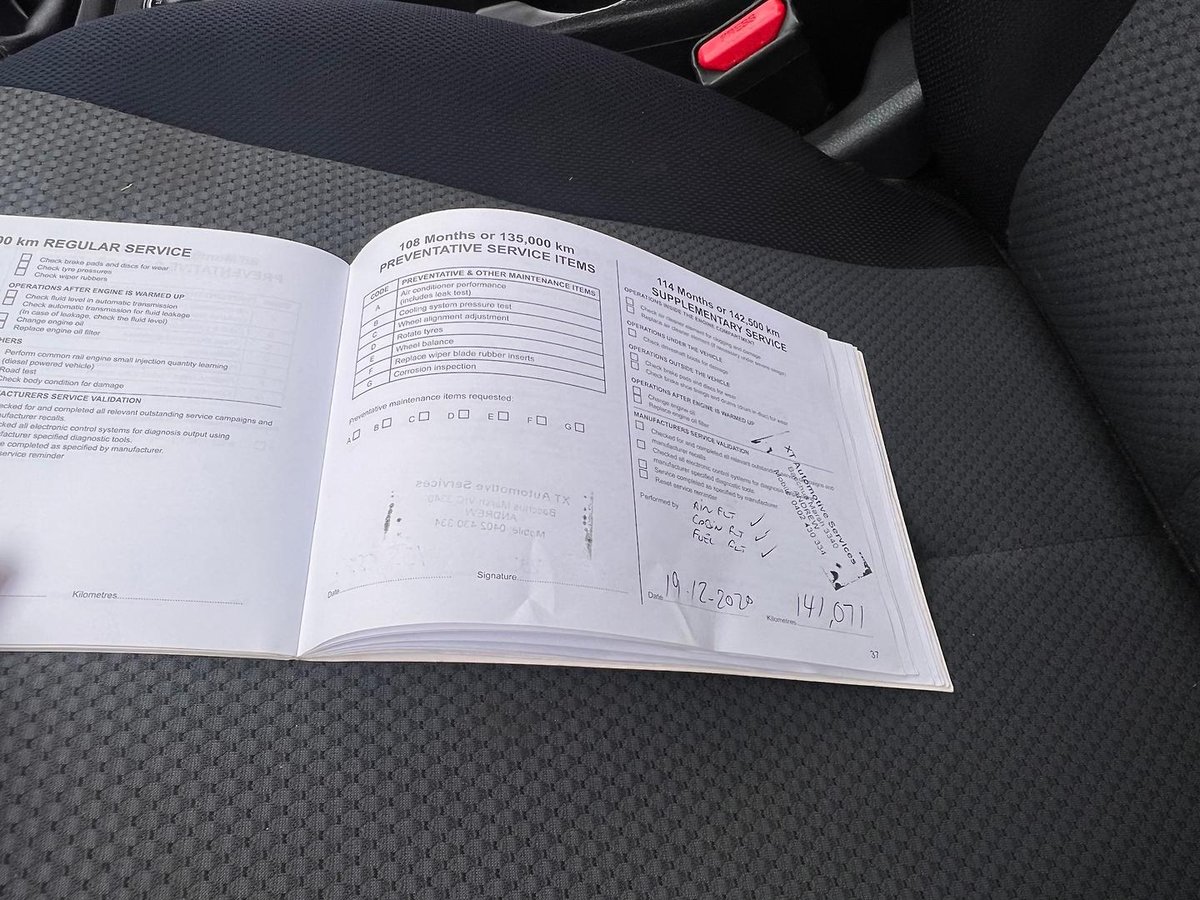 00 km REGULAR SERVICE
Check brake pads and discs for wear
Check tyre pressures
Check wiper rubbers
OPERATIONS AFTER ENGINE IS WARMED UP
Check fluid level in automatic transmission
Check automatic transmission for fluid leakage
(In case of leakage, check the fluid level)
Change engine oil
Replace engine oil filter
HERS
Perform common rail engine small injection quantity learning
(diesel powered vehicle)
Road test
Check body condition for damage
FACTURERS SERVICE VALIDATION
ecked for and completed all relevant outstanding service campaigns and
nufacturer recalls.
cked all electronic control systems for diagnosis output using
facturer specified diagnostic tools.
e completed as specified by manufacturer.
service reminder
Kilometres
108 Months or 135,000 km
PREVENTATIVE SERVICE ITEMS
CODE PREVENTATIVE & OTHER MAINTENANCE ITEMS
A Air conditioner performance
(includes leak test)
B Cooling system pressure test
C Wheel alignment adjustment
D Rotate tyres
E Wheel balance
F Replace wiper blade rubber inserts
G Corrosion inspection
Preventative maintenance items requested:
A B C D E F G
Date Signature
114 Months or 142,500 km
SUPPLEMENTARY SERVICE
OPERATIONS INSIDE THE ENGINE COMPARTMENT
Check air cleaner element for clogging and damage
Replace air cleaner element (if necessary under severe usage)
OPERATIONS UNDER THE VEHICLE
Check driveshaft boots for damage
OPERATIONS OUTSIDE THE VEHICLE
Check brake pads and discs for wear
Check brake shoe linings and drums (drum in disc) for wear
OPERATIONS AFTER ENGINE IS WARMED UP
Change engine oil
Replace engine oil filter
MANUFACTURERS SERVICE VALIDATION
Checked for and completed all relevant outstanding campaigns and
manufacturer recalls
Checked all electronic control systems for diagnosis
manufacturer specified diagnostic tools
Service completed as specified by manufacturer
Reset service reminder
Performed by
AIR FLT
CABIN FLT
FUEL FLT
XT Automotive Services
Bacchus Marsh 3340
ANDREW
Mobile: 0402 430 334
Date 19-12-2020 Kilometres 141,071
37
PRESS